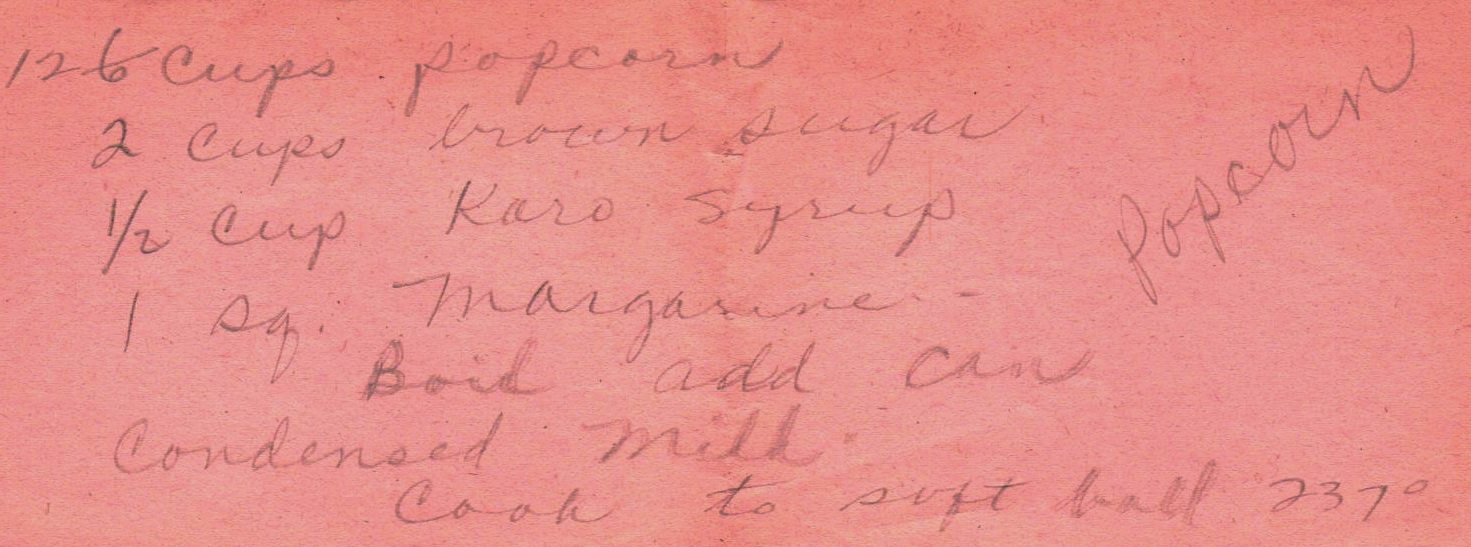 12 6 cups popcorn
2 cups brown sugar
1/2 cup Karo syrup
1 sq. Margarine -
Boil add can
Condensed Milk.
Cook to soft ball 237°
Popcorn